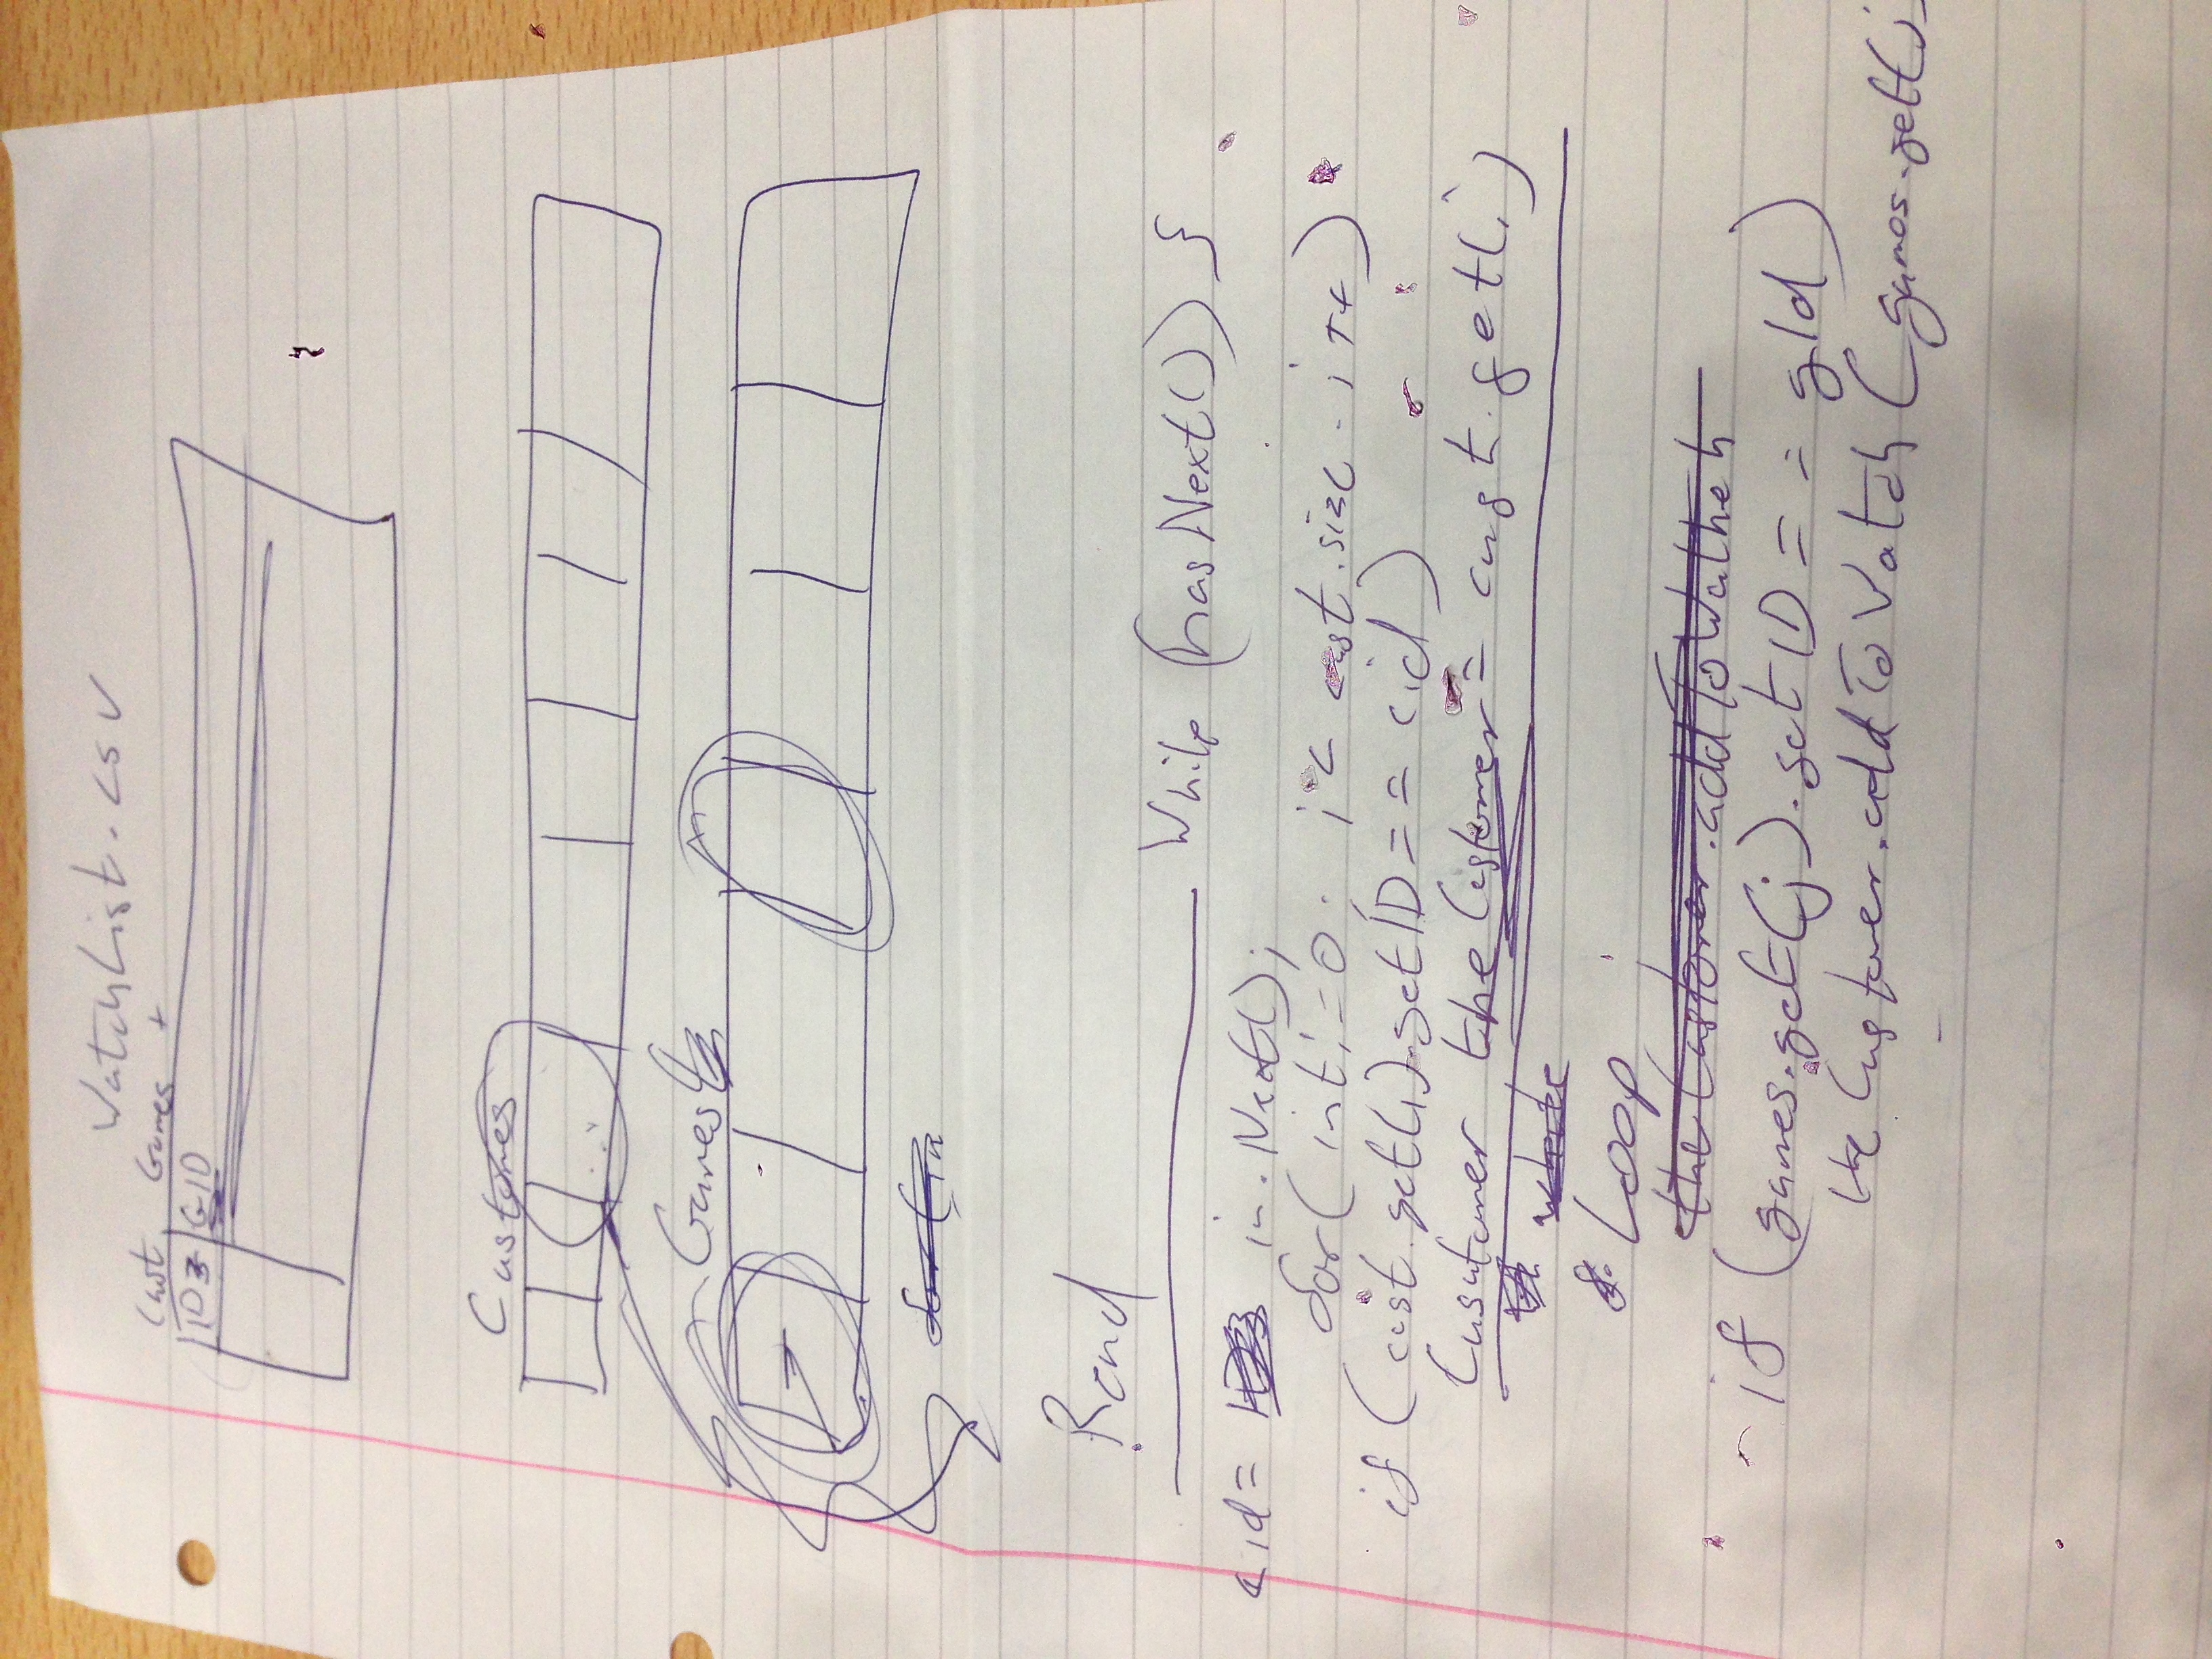 WatchList.csv
Cust Games +
ID GID
Customes
Games
for (in
Read
While (hasNext()) }
cid = in.Next();
for( int i=0; i< cust.size . i ++)
if (cust.get(i).getID == cid)
Cusutomer the Customer = cust.get(i)
while
Loop
the Customer.addToWatheh
if (games.get(j).getID == gId)
the Customer.addToWatch (games.get(j)